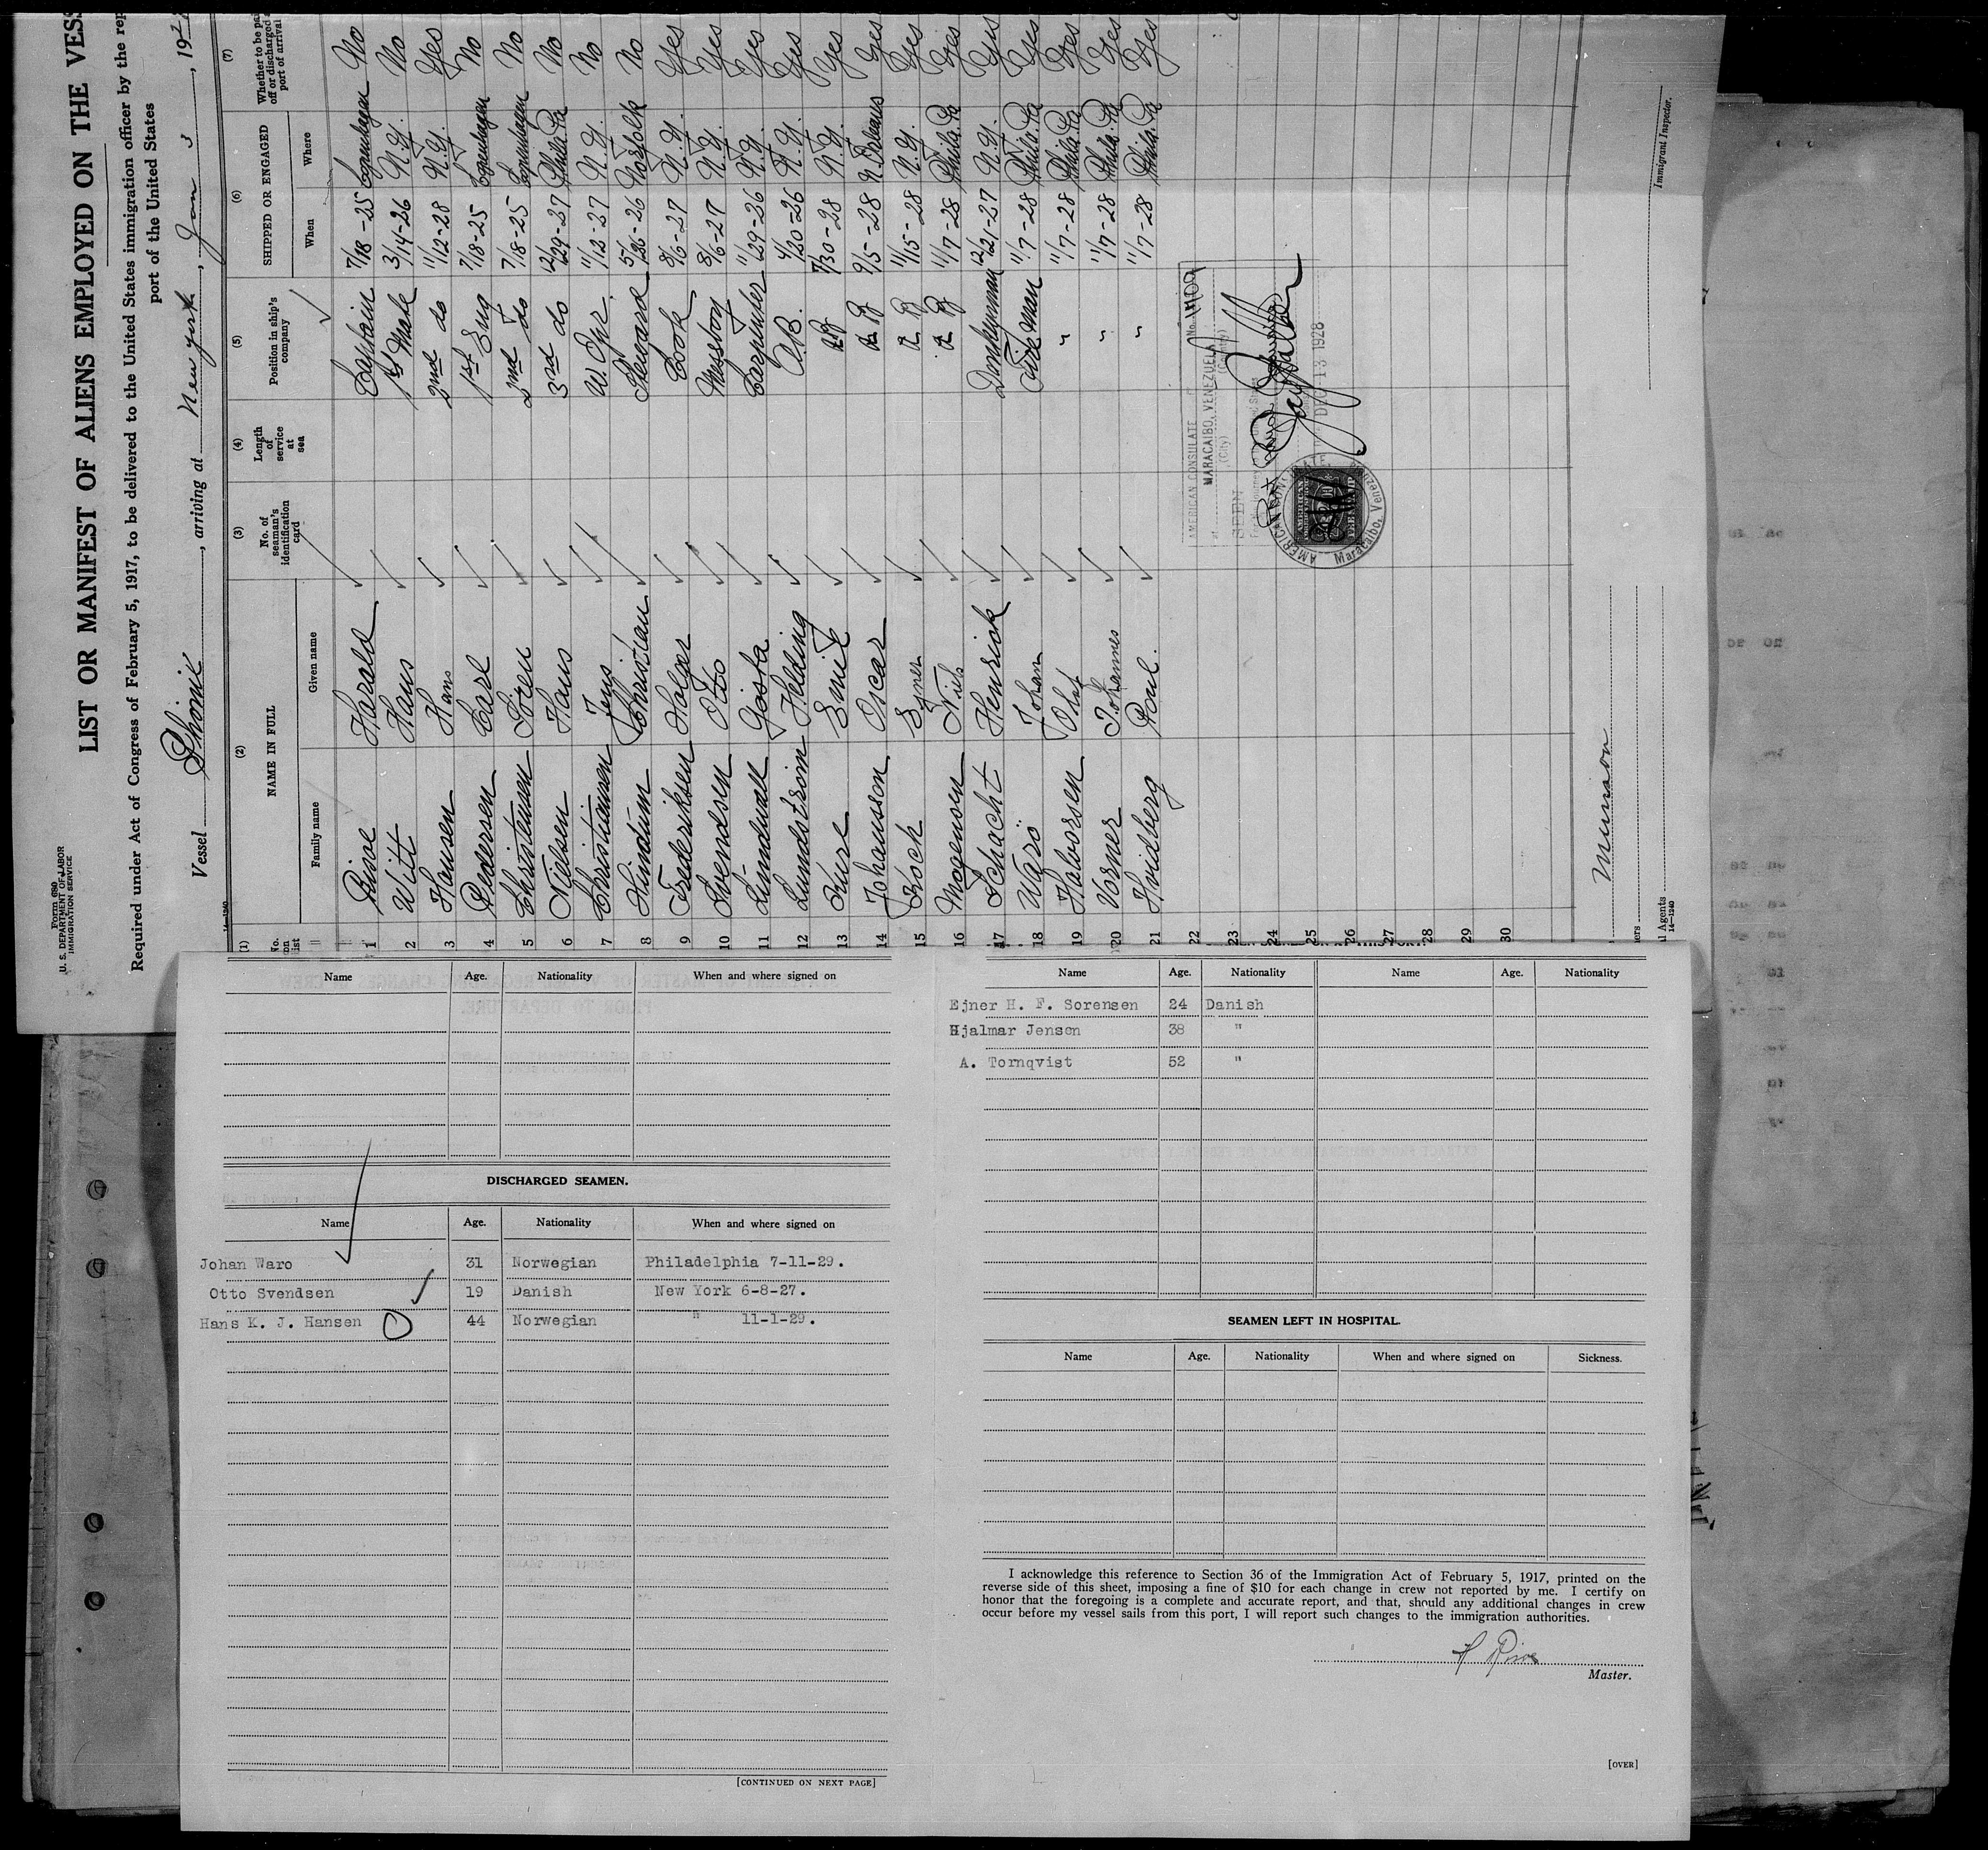 Form 680
U. S. DEPARTMENT OF LABOR
IMMIGRATION SERVICE
LIST OR MANIFEST OF ALIENS EMPLOYED ON THE VES
Required under Act of Congress of February 5, 1917, to be delivered to the United States immigration officer by the rep
port of the United States
Vessel Phönix, arriving at New York, Jan 3, 192
14-1240
(1) (2) (3) (4) (5) (6) (7)
No. on list NAME IN FULL No. of seaman's identification card Length of service at sea Position in ship's company SHIPPED OR ENGAGED Whether to be pai off or discharged port of arrival
Family name Given name When Where
1 Riroe Harald Captain 7/18-25 Copenhagen No
2 Witt Hans 1st Mate 3/14-26 N.Y. No
3 Hansen Hans 2nd do 11/12-28 N.Y. Yes
4 Pedersen Carl 1st Eng 7/18-25 Copenhagen No
5 Christensen Sören 2nd do 7/18-25 Copenhagen No
6 Nielsen Hans 3rd do 12/29-27 Phila. Pa No
7 Christiansen Jens W. Opr. 11/12-27 N.Y. No
8 Hindum Christian Steward 5/26-26 Norfolk No
9 Frederiksen Holger Cook 8/6-27 N.Y. Yes
10 Svendsen Otto Messboy 8/6-27 N.Y. Yes
11 Lundwall Gösta Carpenter 11/29-26 N.Y. Yes
12 Lundström Helding A.B. 4/20-26 N.Y. Yes
13 Kure Emil AB 7/30-28 N.Y. Yes
14 Johansson Oscar A B 9/5-28 N. Orleans Yes
15 Koch Ejner A B 11/15-28 N.Y. Yes
16 Mogensen Niels A B 11/7-28 Phila. Pa Yes
17 Schacht Henrick Donkeyman 12/21-27 N.Y. Yes
18 Warö Johan Fireman 11/7-28 Phila. Pa Yes
19 Halvorsen Olaf " 11/7-28 Phila. Pa Yes
20 Vorner Johannes " 11/7-28 Phila. Pa Yes
21 Hvidberg Poul. " 11/7-28 Phila. Pa Yes
22
23
24
25
26
27
28
29
30
AMERICAN CONSULATE No. 1400
at MARACAIBO, VENEZUELA
(City) (Country)
SEEN
DEC 13 1928
AMERICAN CONSULATE
Maracaibo, Venezuela
Munson
Immigrant Inspector.
ners
l Agents
14-1240
Name Age. Nationality When and where signed on
DISCHARGED SEAMEN.
Name Age. Nationality When and where signed on
Johan Waro 31 Norwegian Philadelphia 7-11-29.
Otto Svendsen 19 Danish New York 6-8-27.
Hans K. J. Hansen 44 Norwegian " 11-1-29.
[CONTINUED ON NEXT PAGE]
Name Age. Nationality Name Age. Nationality
Ejner H. F. Sorensen 24 Danish
Hjalmar Jensen 38 "
A. Tornqvist 52 "
SEAMEN LEFT IN HOSPITAL.
Name Age. Nationality When and where signed on Sickness.
I acknowledge this reference to Section 36 of the Immigration Act of February 5, 1917, printed on the
reverse side of this sheet, imposing a fine of $10 for each change in crew not reported by me. I certify on
honor that the foregoing is a complete and accurate report, and that, should any additional changes in crew
occur before my vessel sails from this port, I will report such changes to the immigration authorities.
H Riroe
Master.
[OVER]